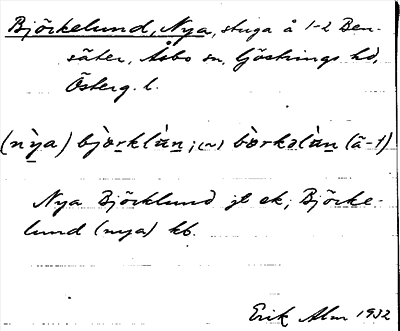 Björkelund, Nya, stuga å 1-2 Ben-
säter, Åsbo sn, Göstrings hd,
Österg. l.
(nỳa) bjòrklùn; (~) bòrkəlùn (ä-1)
Nya Björklund jt ek; Björke-
lund (nya) kb.
Erik Alm 1932